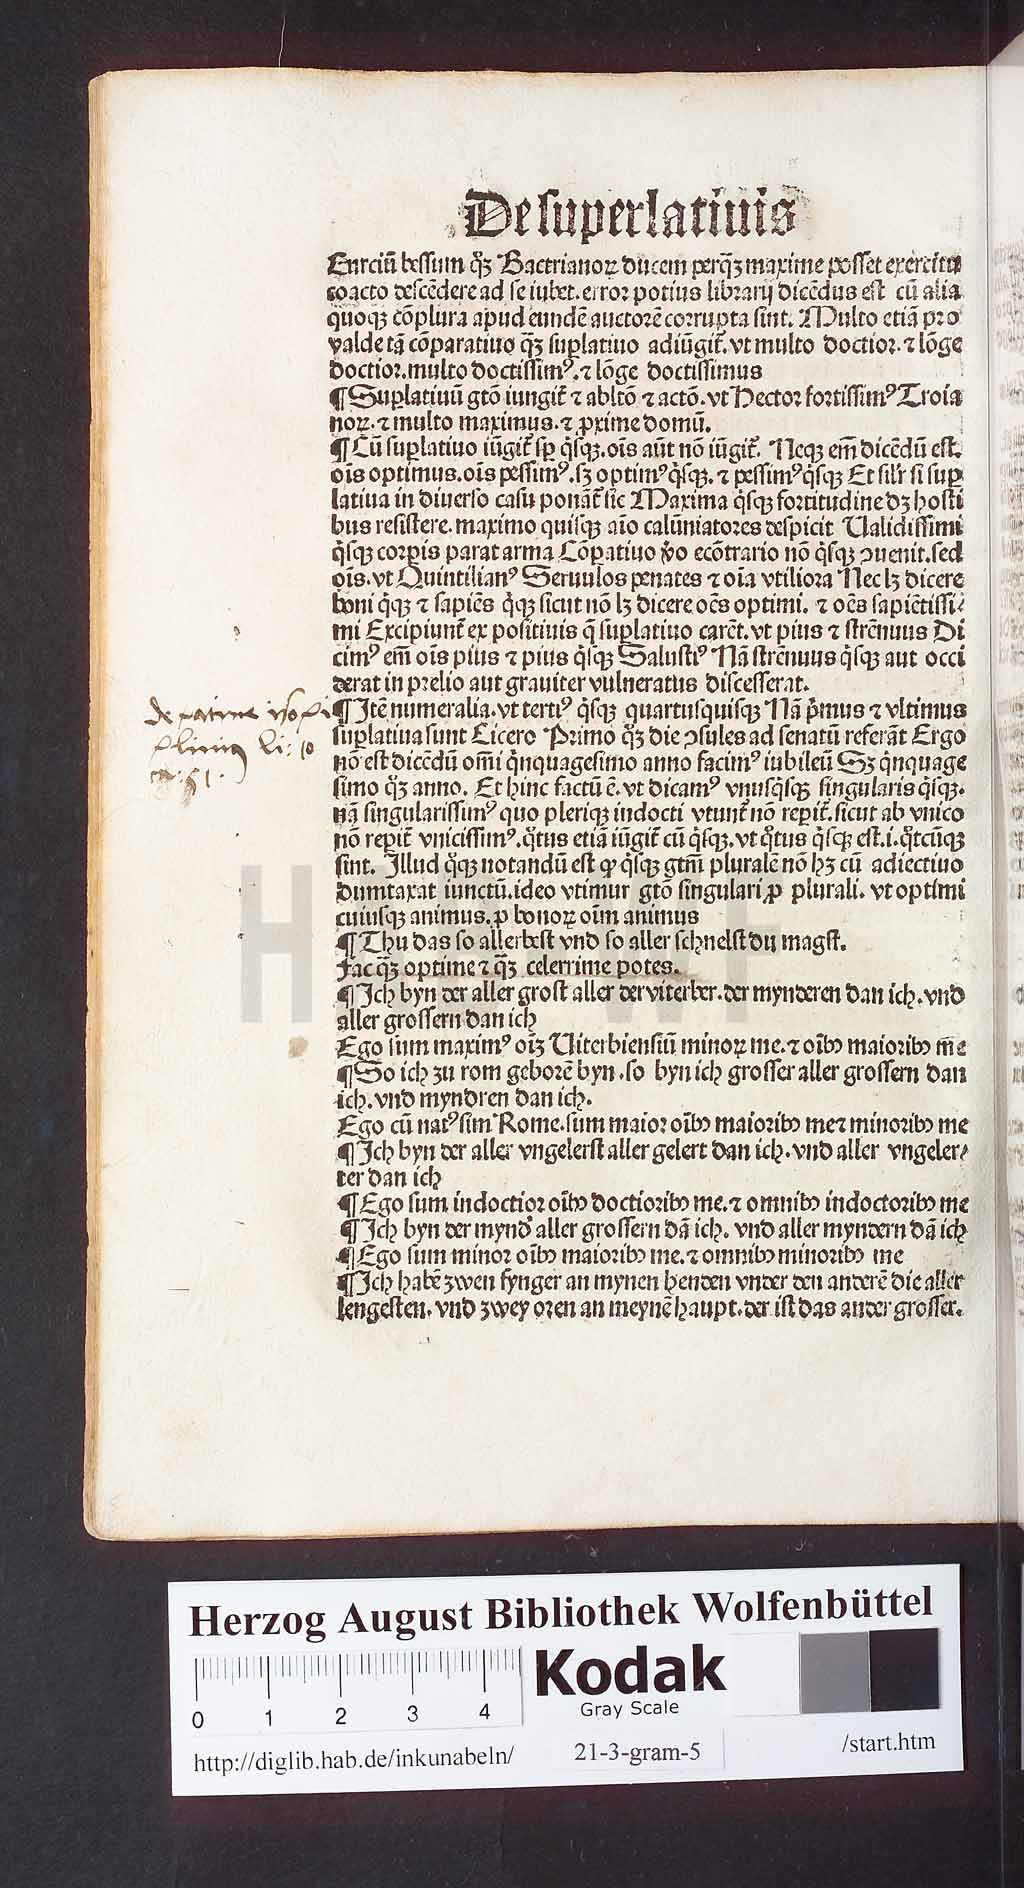 De superlatiuis
Enrciū bessum q̊ꝫ Bactrianoꝝ ducem perq̄ꝫ maxime posset exercitu
coacto descēdere ad se iubet. error potius librarij dicēdus est cū alia
quoqꝫ cōplura apud eundē auctorē corrupta sint. Multo etiā pro
valde tā cōparatiuo q̄ꝫ suꝑlatiuo adiūgit᷑. vt multo doctior. ⁊ lōge
doctior. multo doctissimꝰ. ⁊ lōge doctissimus
¶ Suꝑlatiuū gtō iungit᷑ ⁊ abltō ⁊ actō. vt Hector fortissimꝰ Troia
noꝝ. ⁊ multo maximus. ⁊ ꝓxime domū.
¶ Cū suꝑlatiuo iūgit᷑ sꝑ q̇sqꝫ. oīs aūt nō iūgit᷑. Neqꝫ em̄ dicēdū est.
oīs optimus. oīs pessimꝰ. sꝫ optimꝰ q̇sqꝫ. ⁊ pessimꝰ q̇sqꝫ Et silr̄ si suꝑ
latiua in diuerso casu ponāt᷑ sic Maxima q̇sqꝫ fortitudine dꝫ hosti
bus resistere. maximo quisqꝫ aīo calūniatores despicit Validissimi
q̇sqꝫ corꝑis parat arma Cōꝑatiuo v̊o ecōtrario nō q̇sqꝫ ꝯuenit. sed
oīs. vt Quintilianꝰ Seruulos penates ⁊ oīa vtiliora Nec lꝫ dicere
boni q̇qꝫ ⁊ sapiēs q̇qꝫ sicut nō lꝫ dicere oēs optimi. ⁊ oēs sapiētissi⸗
mi Excipiunt᷑ ex positiuis q̄ suꝑlatiuo carēt. vt pius ⁊ strēnuus Di
cimꝰ em̄ oīs pius ⁊ pius q̇sqꝫ Salustiꝰ Nā strēnuus q̇sqꝫ aut occi
derat in prelio aut grauiter vulneratus discesserat.
¶ Itē numeralia. vt tertiꝰ q̇sqꝫ quartusquisqꝫ Nā p̄mus ⁊ vltimus
suꝑlatiua sunt Cicero Primo q̊ꝫ die ꝯsules ad senatū referāt Ergo
nō est dicēdū om̄i q̇nquagesimo anno facimꝰ iubileū Sꝫ q̇nquage
simo q̊ꝫ anno. Et hinc factū ē. vt dicamꝰ vnusq̇sqꝫ singularis q̇sqꝫ.
nā singularissimꝰ quo pleriqꝫ indocti vtunt᷑ nō reꝑit᷑. sicut ab vnico
nō reꝑit᷑ vnicissimꝰ. q̊tus etiā iūgit᷑ cū q̇sqꝫ. vt q̊tus q̇sqꝫ est. i. q̊tcūqꝫ
sint. Illud q̊qꝫ notandū est ꝙ q̇sqꝫ gtm̄ pluralē nō hꝫ cū adiectiuo
dumtaxat iunctū. ideo vtimur gtō singulari ꝓ plurali. vt optimi
cuiusqꝫ animus. ꝓ bonoꝝ oīm animus
¶ Thu das so allerbest vnd so aller schnelst du magst.
Fac q̄ꝫ optime ⁊ q̄ꝫ celerrime potes.
¶ Ich byn der aller grost aller der viterber. der mynderen dan ich. vnd
aller grossern dan ich
Ego sum maximꝰ oīꝫ Viterbiensiū minoꝝ me. ⁊ oībꝰ maioribꝰ me
¶ So ich zu rom geborē byn. so byn ich grosser aller grossern dan
ich. vnd myndren dan ich.
Ego cū natꝰ sim Rome. sum maior oībꝰ maioribꝰ me ⁊ minoribꝰ me
¶ Ich byn der aller vngelerst aller gelert dan ich. vnd aller vngeler⸗
ter dan ich
¶ Ego sum indoctior oībꝰ doctioribꝰ me. ⁊ omnibꝰ indoctoribꝰ me
¶ Ich byn der mynd̉ aller grossern dā ich. vnd aller myndern dā ich
¶ Ego sum minor oībꝰ maioribꝰ me. ⁊ omnibꝰ minoribꝰ me
¶ Ich habē zwen fynger an mynen henden vnder den anderē die aller
lengesten. vnd zwey oren an meynē haupt. der ist das ander grosser.
de patrue
plinius li: 10
HAB WF
Herzog August Bibliothek Wolfenbüttel
0 1 2 3 4
Kodak
Gray Scale
http://diglib.hab.de/inkunabeln/ 21-3-gram-5 /start.htm